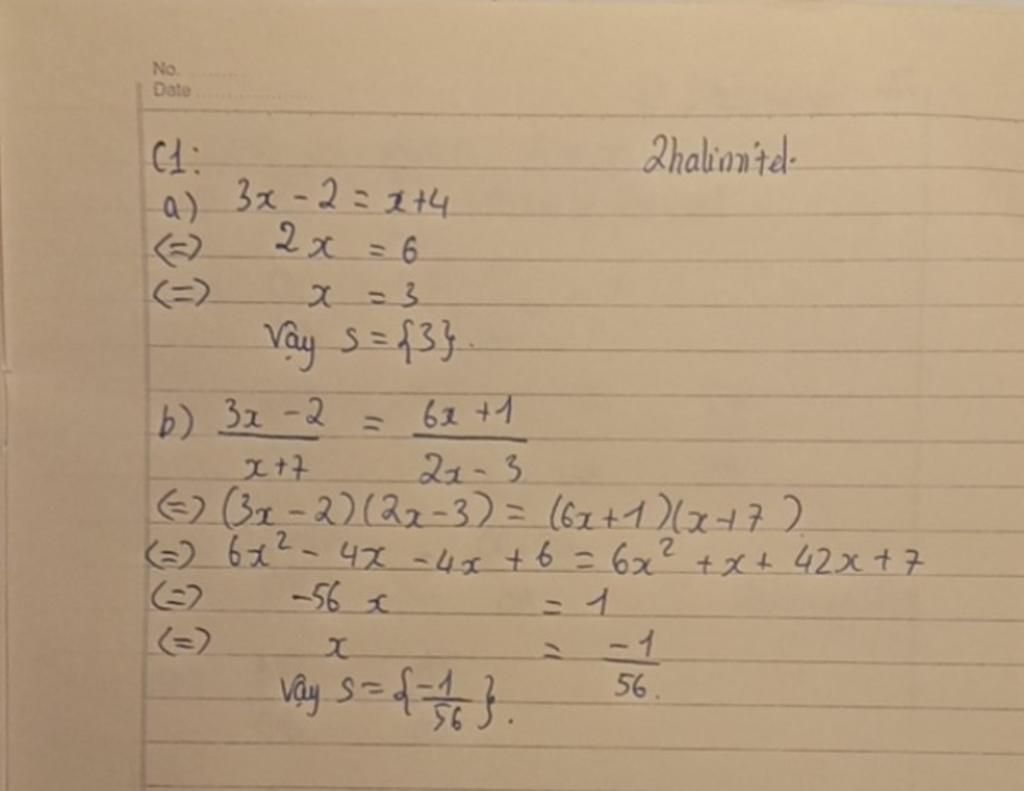 No. ............
Date ......................
C1:
2halinn'td.
a) 3x - 2 = x+4
(=) 2x = 6
(=) x = 3
Vậy S = {3}.
b) (3x - 2)/(x+7) = (6x +1)/(2x - 3)
(=) (3x - 2)(2x - 3) = (6x+1)(x+7)
(=) 6x² - 4x - 4x + 6 = 6x² + x + 42x + 7
(=) -56 x = 1
(=) x = -1/56.
Vậy S = {-1/56}.